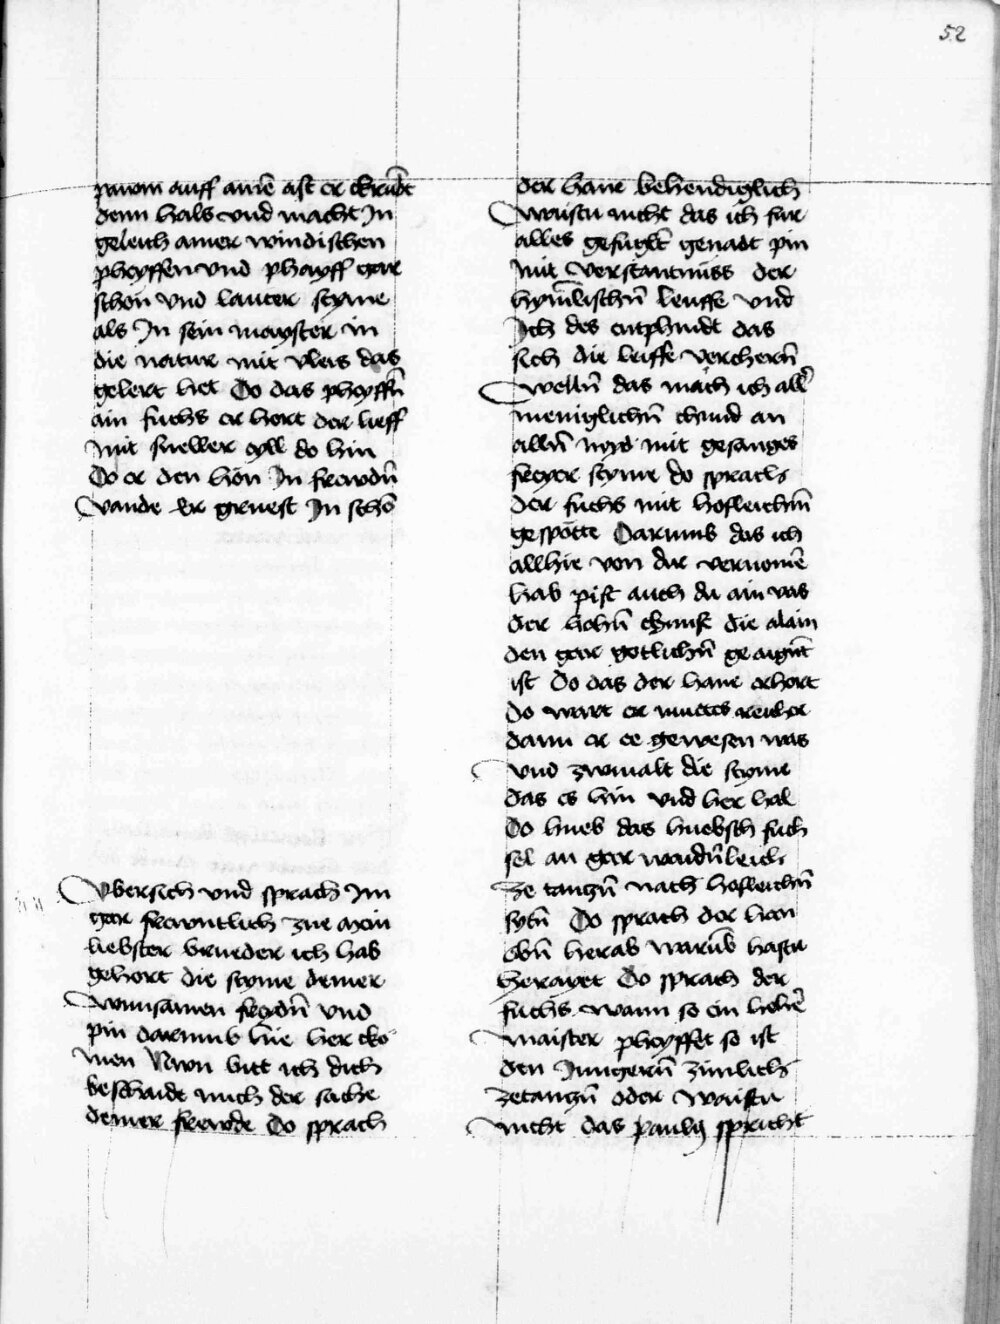 52
pawm auff aine ast er chrūbt
denn hals vnd macht In
geleich ainer windischen
pheyffen vnd phayff gar
schon vnd lauter styme
als In sein mayster in
die natur mit vleis das
gelert het Do das pheyffn̄
ain fuchs er hort der lieff
mit sneller eyll do hin
Do er den hon In frewdn̄
vande Er gruest In schō
Vbersich vnd sprach Im
gar frewntlich zue mein
liebster brueder ich hab
gehort die styme deiner
wunsamen freydn̄ vnd
pin darumb hie her cko
men Nwn bit ich dich
beschaide mich der sache
deiner frewde Do sprach
der hane behendiglich
Waistu nicht das ich fur
alles gefugl̄ genadt pin
mit verstantnuss der
hym̄lischn̄ leuffe vnd
Ich des entphindt das
sich die leiffe verchern̄
welln̄ das mach ich all̄
meniglichn̄ chund an
alln̄ nyd mit gesanges
freyer styme do sprach
der fuchs mit hofleichn̄
gespotte Darumb das ich
allhie von dir vernomē
hab pist auch du ain vas
der hohn̄ chunst die alain
den gar gotlichn̄ geaignt
ist Do das der hane erhort
do wart er muetes reicher
dann er ee gewesen was
vnd zwinalt die styme
das es hin vnd her hal
Do hueb das huebsch fuch
sel an gar waidn̄leich
ze tanzn̄ nach hofleichn̄
sytn̄ Do sprach der han
obn̄ herab warūb hastu
gerayet Do sprach der
fuchs wann so ein liebē
maister pheyffet so ist
den Jungern̄ zimlich
zetanzn̄ oder waistu
nicht das pauly spricht